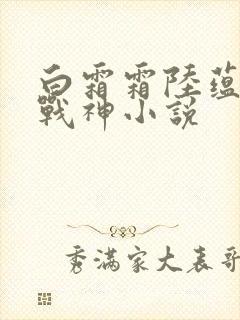 白霜霜陸蘊
戰神小說
秀滿家大表哥